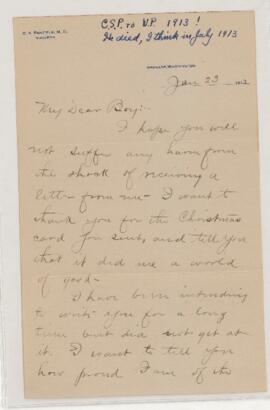 C.S.P. to V.P. 1913!
He died, I think in July 1913
Jan 23
My Dear Boy:-
I hope you will
not suffer any harm from
the shock of receiving a
letter from me - I want to
thank you for the Christmas
card you sent, and tell you
that it did me a world
of good -
I have been intending
to write you for a long
time but did not get at
it. I want to tell you
how proud I am of the